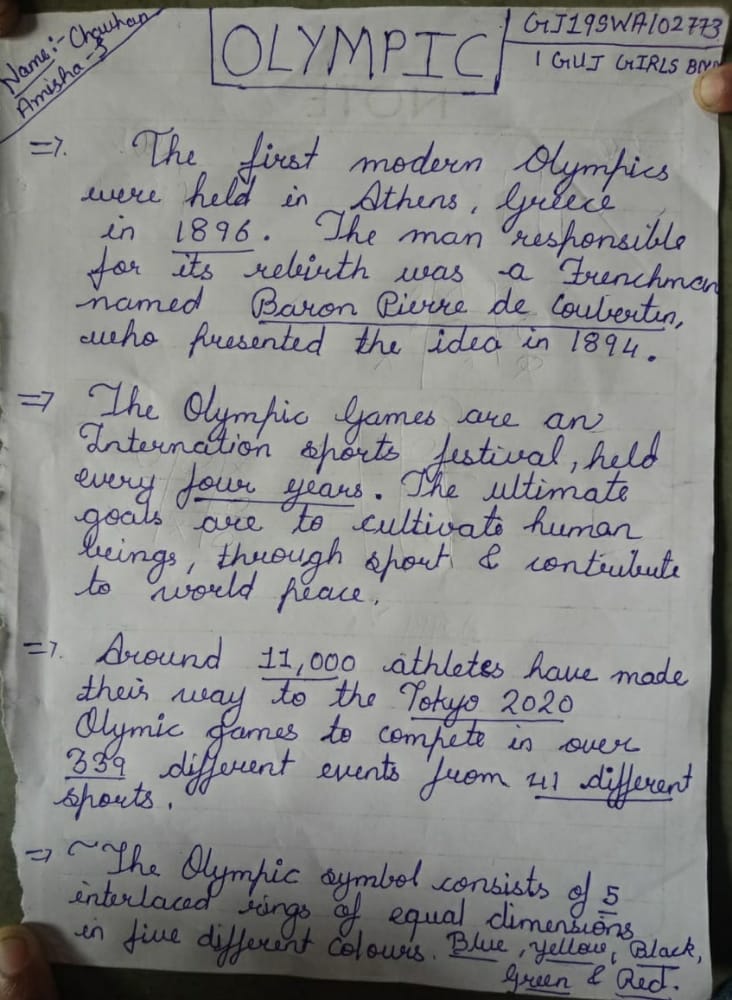 Name:- Chauhan
Amisha-J
OLYMPIC
GJ19SWA102773
1 GUJ GIRLS BN
=>. The first modern Olympics
were held in Athens, Greece
in 1896. The man responsible
for its rebirth was a Frenchman
named Baron Pierre de Coubertin,
who presented the idea in 1894.
=> The Olympic Games are an
Internation sports festival, held
every four years. The ultimate
goals are to cultivate human
beings, through sport & contribute
to world peace.
=>. Around 11,000 athletes have made
their way to the Tokyo 2020
Olymic games to compete in over
339 different events from 41 different
sports.
=> ~The Olympic symbol consists of 5
interlaced rings of equal dimensions
in five different colours. Blue, yellow, Black,
Green & Red.